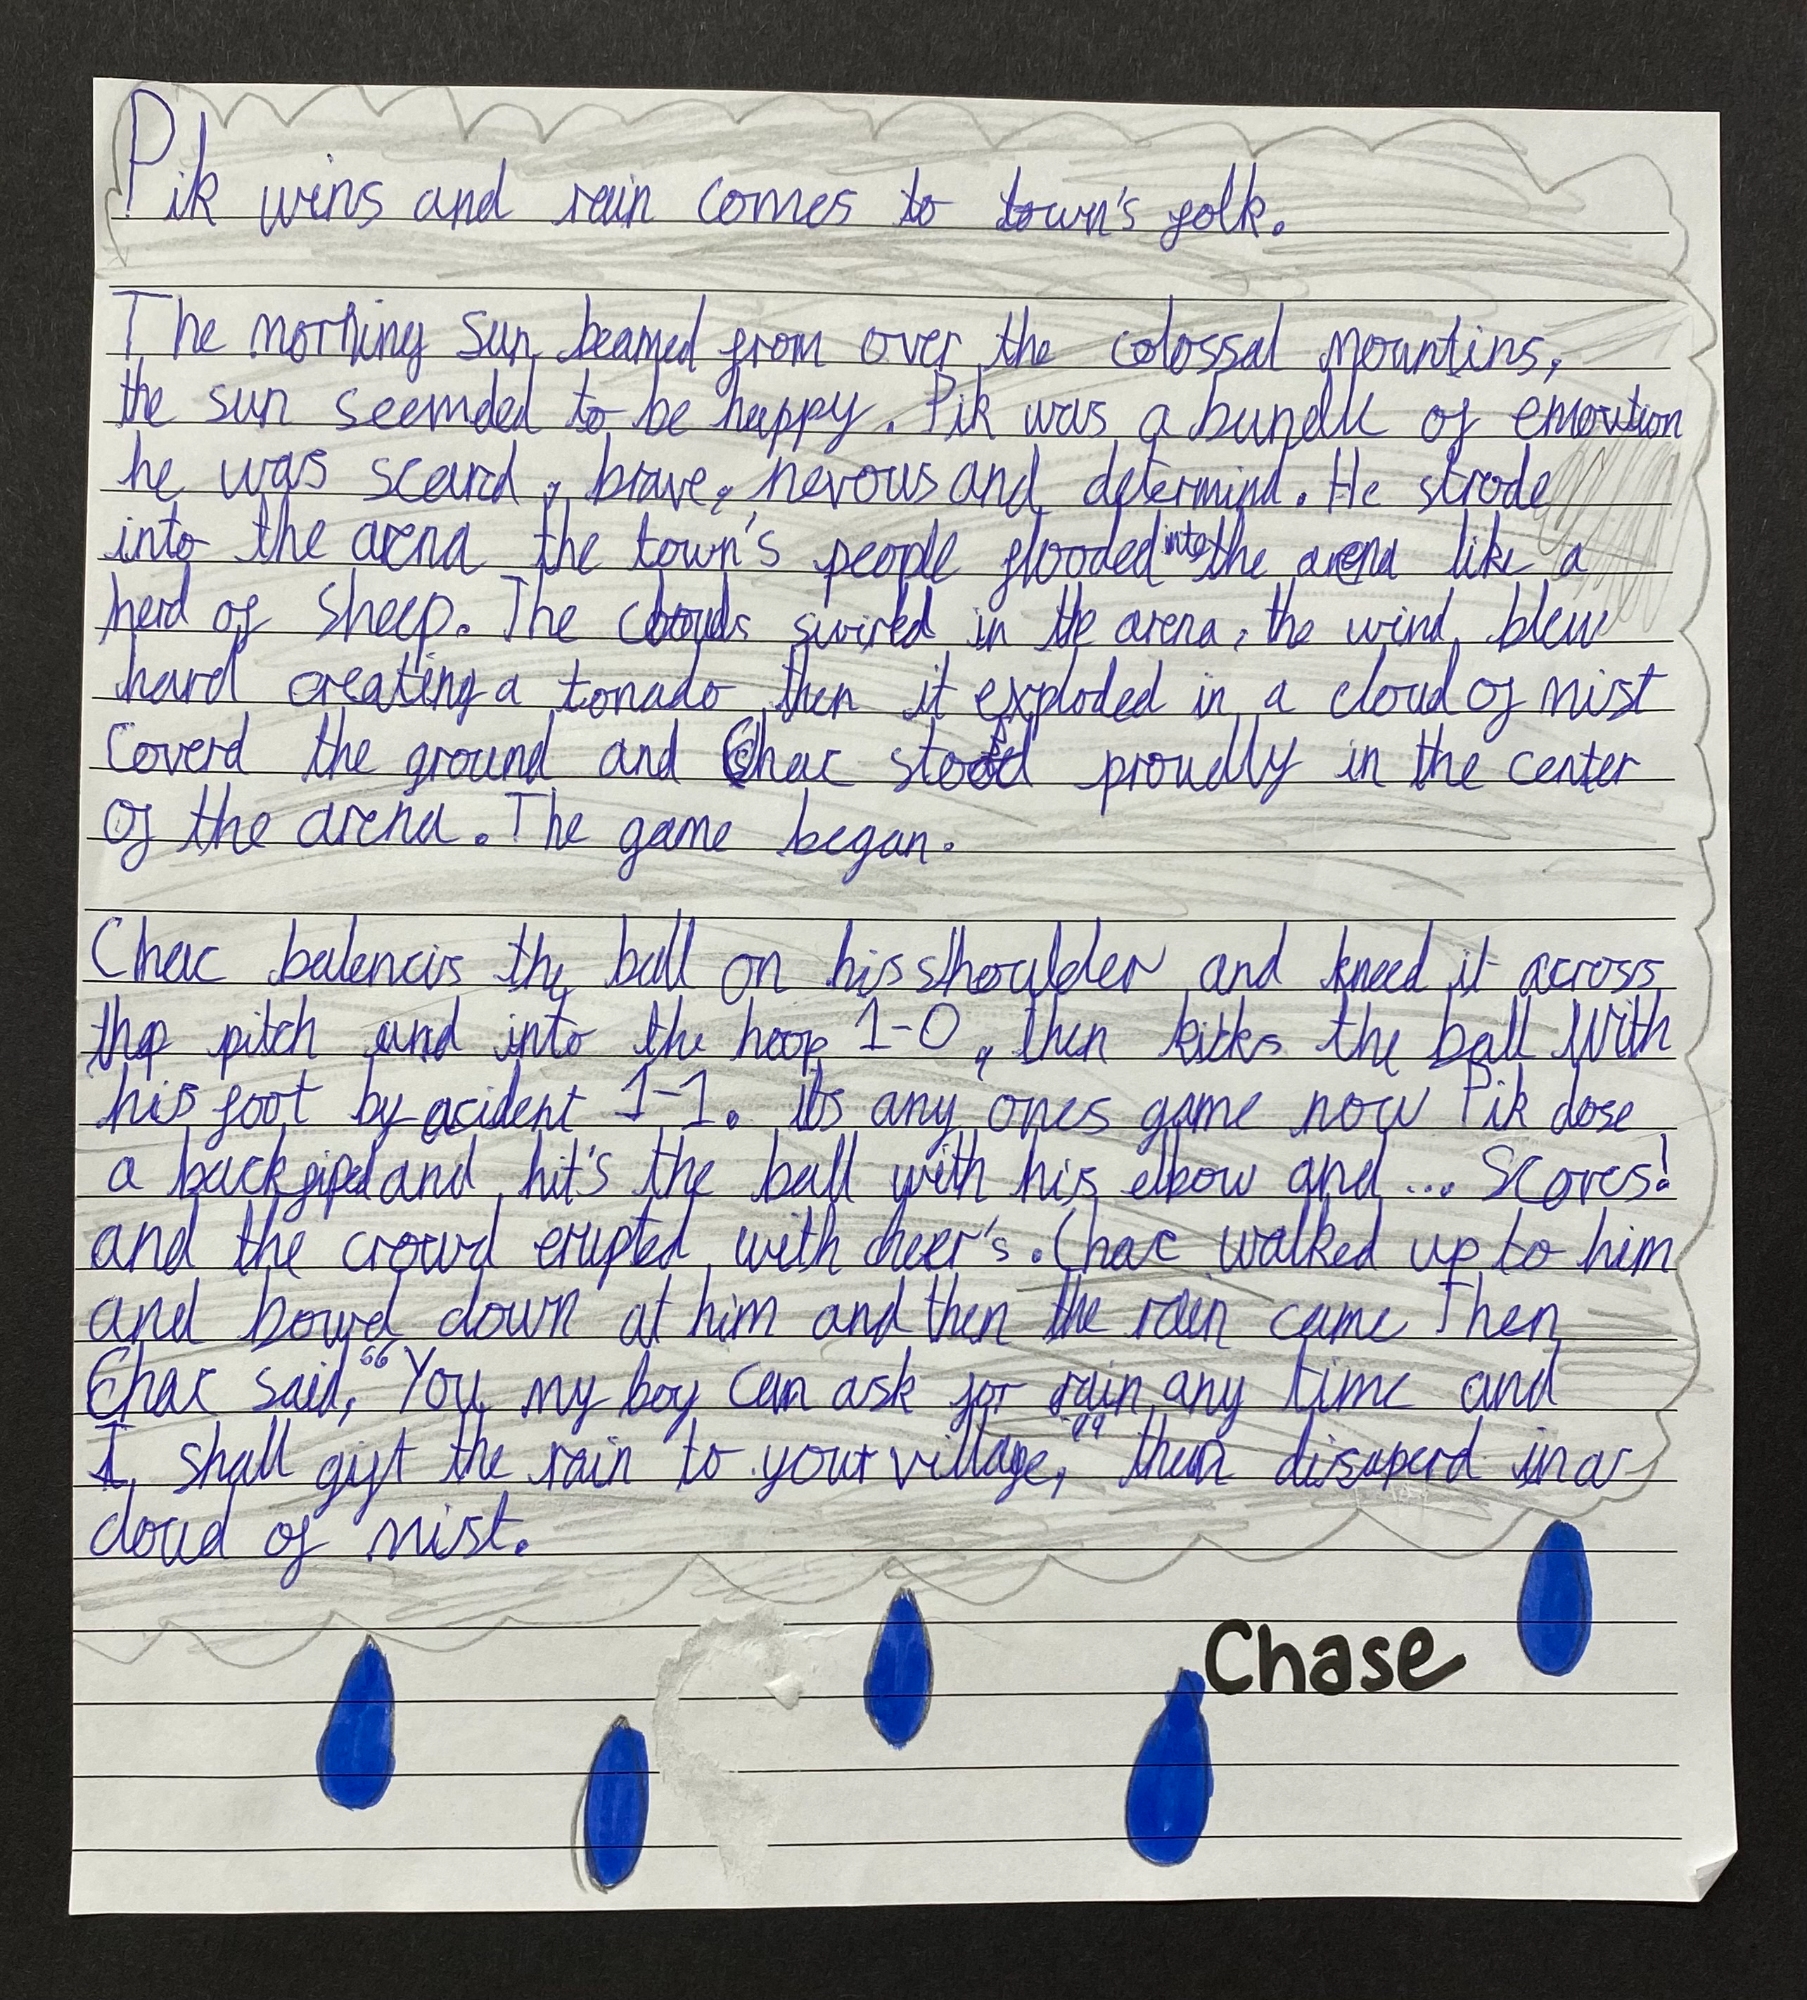 Pik wins and rain comes to town's folk.
The morning sun beamed from over the colossal mountins,
the sun seemded to be happy. Pik was a bundle of emoution
he was scard, brave, nevous and determind. He strode
into the arena the town's people flooded into the arena like a
herd of sheep. The clouds swirled in the arena, the wind blew
hard creating a tonado then it exploded in a cloud of mist
coverd the ground and Chac stood proudly in the center
of the arena. The game began.
Chac balencis the ball on his shoulder and kneed it across
the pitch and into the hoop 1-0, then kicks the ball with
his foot by acident 1-1. Its any ones game now Pik dose
a back and hit's the ball with his elbow and... Scores!
and the crowd erupted with cheer's. Chac walked up to him
and bowd down at him and then the rain came Then
Chac said, "You my boy can ask for rain any time and
I shall gift the rain to your village," then disaperd in a
cloud of mist.
Chase